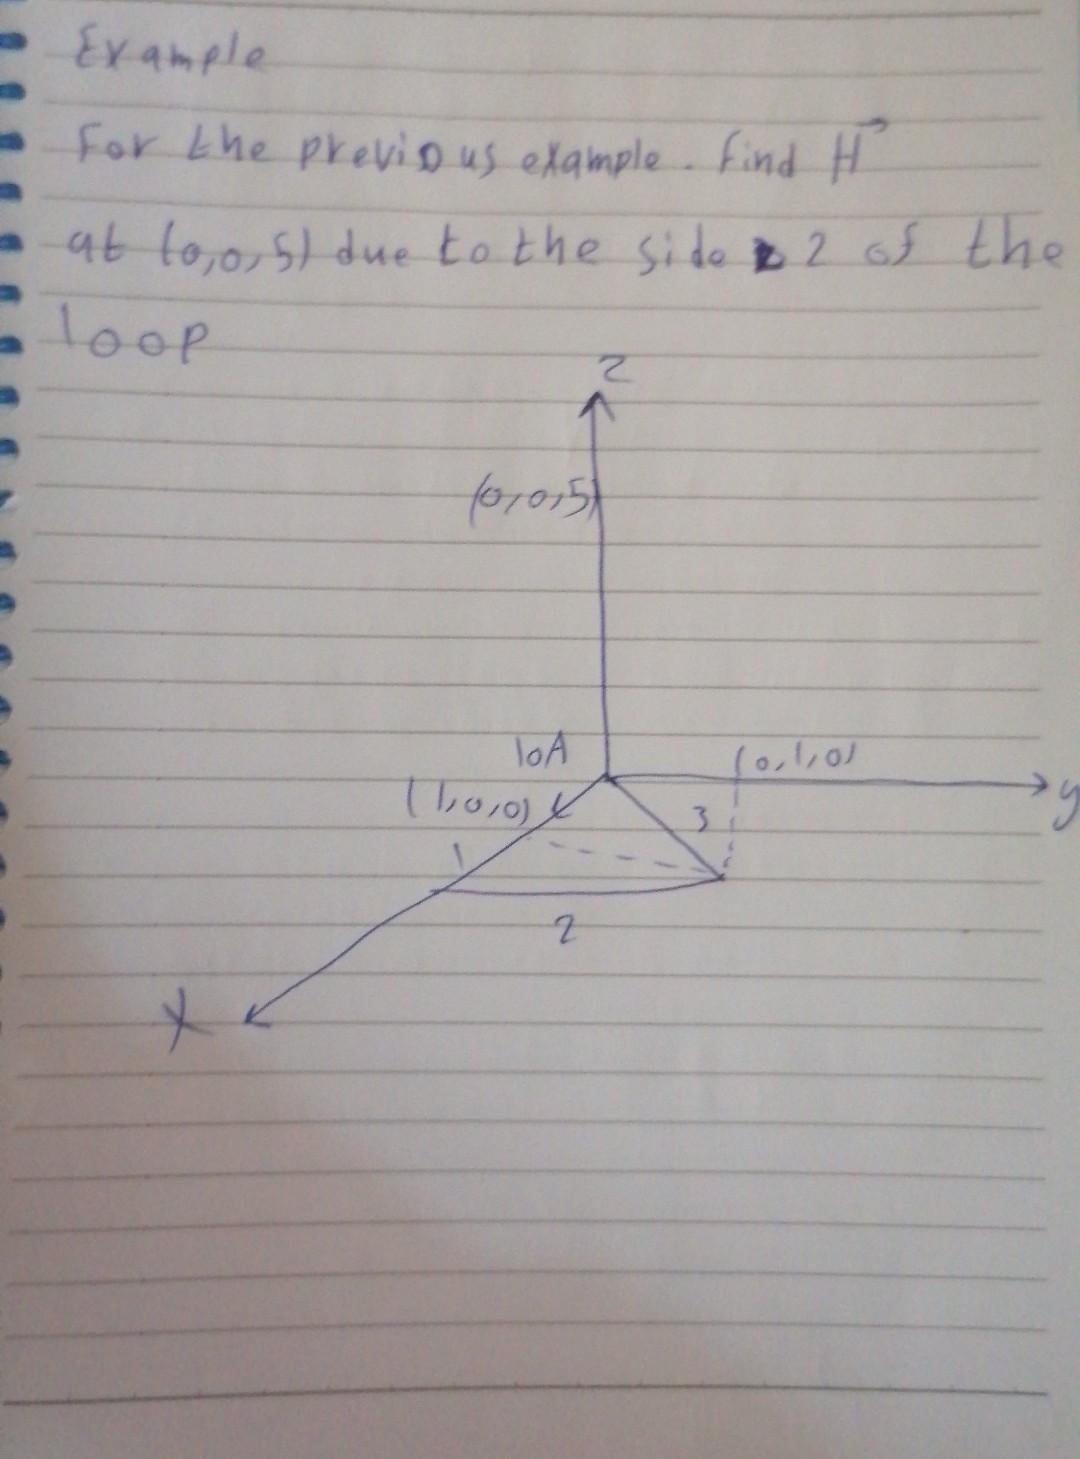 Example
For the previous example. find H
at (0,0,5) due to the side 2 of the
loop
z
(0,0,5)
10A
(0,1,0)
(1,0,0)
3
y
1
2
X